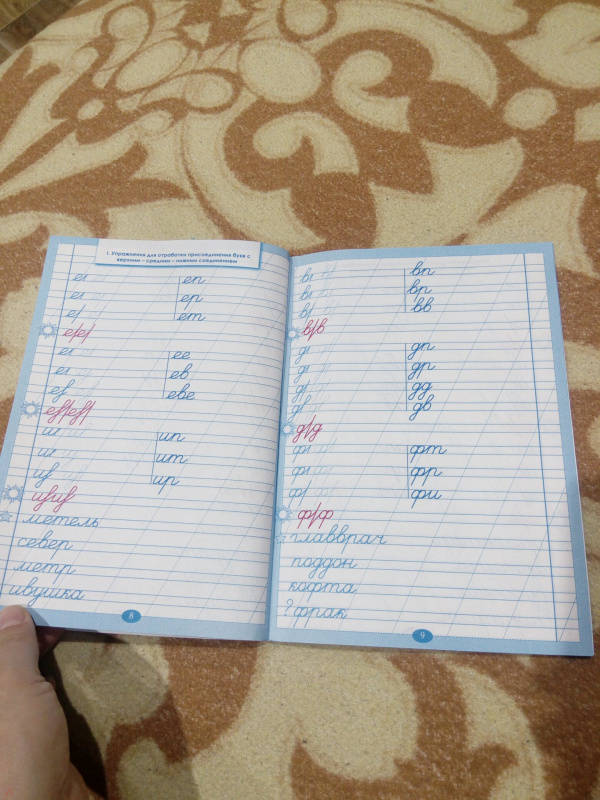 I. Упражнения для отработки присоединения букв с
верхним – средним – нижним соединением
еп
ер
ет
ее
ев
еве
ип
ит
ир
метель
север
метр
ивушка
8
вп
вр
вв
дп
др
дд
дв
фт
фр
фи
главврач
поддон
кофта
? фрак
9